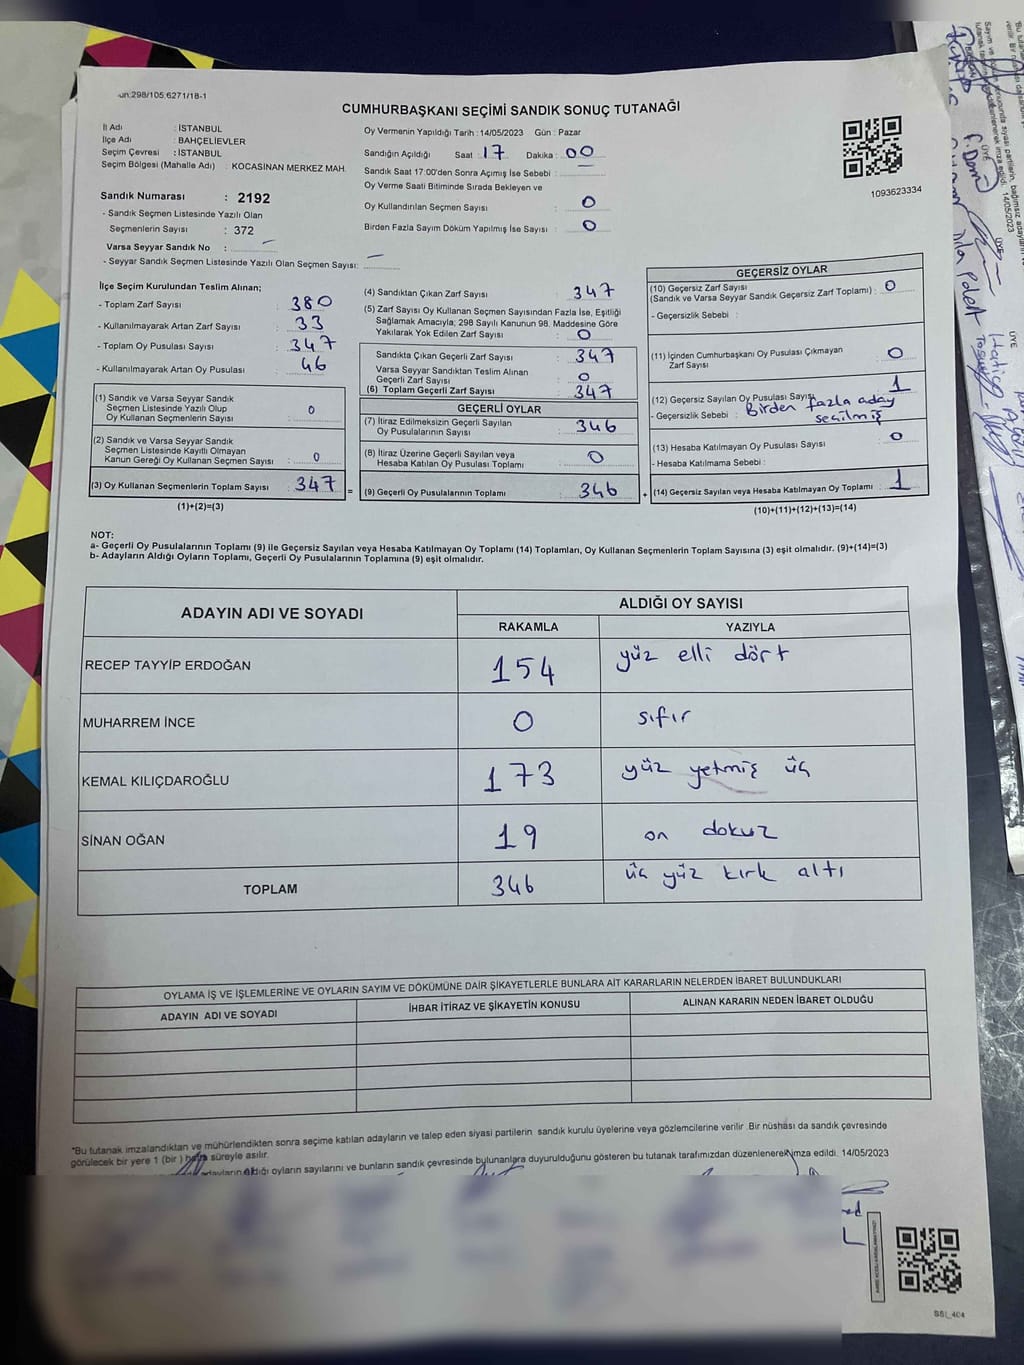 un:298/105:6271/18-1
CUMHURBAŞKANI SEÇİMİ SANDIK SONUÇ TUTANAĞI
İl Adı : İSTANBUL
İlçe Adı : BAHÇELİEVLER
Seçim Çevresi : İSTANBUL
Seçim Bölgesi (Mahalle Adı) : KOCASİNAN MERKEZ MAH.
Sandık Numarası : 2192
- Sandık Seçmen Listesinde Yazılı Olan
Seçmenlerin Sayısı : 372
Varsa Seyyar Sandık No : –
- Seyyar Sandık Seçmen Listesinde Yazılı Olan Seçmen Sayısı: –
Oy Vermenin Yapıldığı Tarih : 14/05/2023 Gün : Pazar
Sandığın Açıldığı Saat : 17 Dakika : 00
Sandık Saat 17:00'den Sonra Açımış İse Sebebi : –
Oy Verme Saati Bitiminde Sırada Bekleyen ve
Oy Kullandırılan Seçmen Sayısı : 0
Birden Fazla Sayım Döküm Yapılmış İse Sayısı : 0
1093623334
İlçe Seçim Kurulundan Teslim Alınan;
- Toplam Zarf Sayısı : 380
- Kullanılmayarak Artan Zarf Sayısı : 33
- Toplam Oy Pusulası Sayısı : 347
- Kullanılmayarak Artan Oy Pusulası : 46
(1) Sandık ve Varsa Seyyar Sandık
Seçmen Listesinde Yazılı Olup
Oy Kullanan Seçmenlerin Sayısı : 0
(2) Sandık ve Varsa Seyyar Sandık
Seçmen Listesinde Kayıtlı Olmayan
Kanun Gereği Oy Kullanan Seçmen Sayısı : 0
(3) Oy Kullanan Seçmenlerin Toplam Sayısı : 347
(1)+(2)=(3)
(4) Sandıktan Çıkan Zarf Sayısı : 347
(5) Zarf Sayısı Oy Kullanan Seçmen Sayısından Fazla İse, Eşitliği
Sağlamak Amacıyla; 298 Sayılı Kanunun 98. Maddesine Göre
Yakılarak Yok Edilen Zarf Sayısı : 0
Sandıkta Çıkan Geçerli Zarf Sayısı : 347
Varsa Seyyar Sandıktan Teslim Alınan
Geçerli Zarf Sayısı : 0
(6) Toplam Geçerli Zarf Sayısı : 347
GEÇERLİ OYLAR
(7) İtiraz Edilmeksizin Geçerli Sayılan
Oy Pusulalarının Sayısı : 346
(8) İtiraz Üzerine Geçerli Sayılan veya
Hesaba Katılan Oy Pusulası Toplamı : 0
= (9) Geçerli Oy Pusulalarının Toplamı : 346
GEÇERSİZ OYLAR
(10) Geçersiz Zarf Sayısı
(Sandık ve Varsa Seyyar Sandık Geçersiz Zarf Toplamı) : 0
- Geçersizlik Sebebi :
(11) İçinden Cumhurbaşkanı Oy Pusulası Çıkmayan
Zarf Sayısı : 0
(12) Geçersiz Sayılan Oy Pusulası Sayısı : 1
- Geçersizlik Sebebi : Birden fazla aday
seçilmiş
(13) Hesaba Katılmayan Oy Pusulası Sayısı : 0
- Hesaba Katılmama Sebebi :
+ (14) Geçersiz Sayılan veya Hesaba Katılmayan Oy Toplamı : 1
(10)+(11)+(12)+(13)=(14)
NOT:
a- Geçerli Oy Pusulalarının Toplamı (9) ile Geçersiz Sayılan veya Hesaba Katılmayan Oy Toplamı (14) Toplamları, Oy Kullanan Seçmenlerin Toplam Sayısına (3) eşit olmalıdır. (9)+(14)=(3)
b- Adayların Aldığı Oyların Toplamı, Geçerli Oy Pusulalarının Toplamına (9) eşit olmalıdır.
ADAYIN ADI VE SOYADI
ALDIĞI OY SAYISI
RAKAMLA YAZIYLA
RECEP TAYYİP ERDOĞAN 154 yüz elli dört
MUHARREM İNCE 0 sıfır
KEMAL KILIÇDAROĞLU 173 yüz yetmiş üç
SİNAN OĞAN 19 on dokuz
TOPLAM 346 üç yüz kırk altı
OYLAMA İŞ VE İŞLEMLERİNE VE OYLARIN SAYIM VE DÖKÜMÜNE DAİR ŞİKAYETLERLE BUNLARA AİT KARARLARIN NELERDEN İBARET BULUNDUKLARI
ADAYIN ADI VE SOYADI İHBAR İTİRAZ VE ŞİKAYETİN KONUSU ALINAN KARARIN NEDEN İBARET OLDUĞU
*Bu tutanak imzalandıktan ve mühürlendikten sonra seçime katılan adayların ve talep eden siyasi partilerin sandık kurulu üyelerine veya gözlemcilerine verilir. Bir nüshası da sandık çevresinde
görülecek bir yere 1 (bir ) hafta süreyle asılır.
adayların aldığı oyların sayılarını ve bunların sandık çevresinde bulunanlara duyurulduğunu gösteren bu tutanak tarafımızdan düzenlenerek imza edildi. 14/05/2023
SSI_404